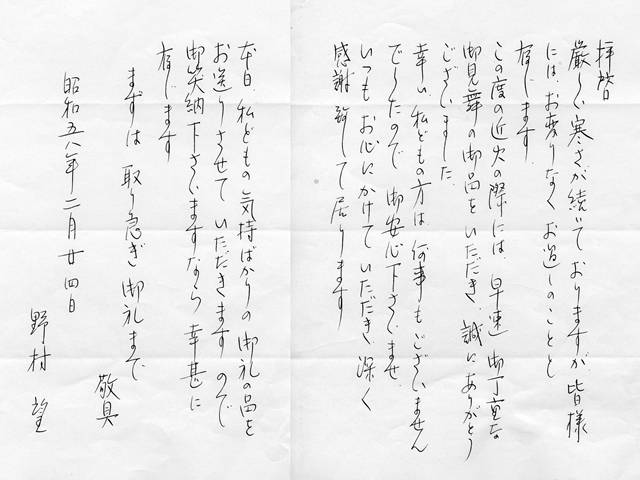 拝啓
厳しい寒さが続いておりますが、皆様
には、お変りなくお過しのことと
存じます。
この度の近火の際には、早速、御丁重な
御見舞の御品をいただき、誠にありがとう
ございました。
幸い、私どもの方は、何事もございません
でしたので、御安心下さいませ。
いつもお心にかけていただき、深く
感謝致して居ります。
本日、私どもの気持ばかりの御礼の品を
お送りさせていただきますので
御笑納下さいますなら幸甚に
存じます。
まずは取り急ぎ御礼まで
敬具
昭和五八年二月廿四日
野村 望